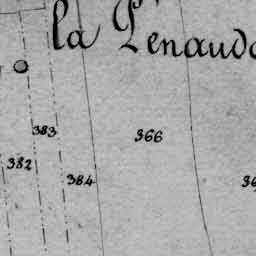 la Penaud
383
366
382
384